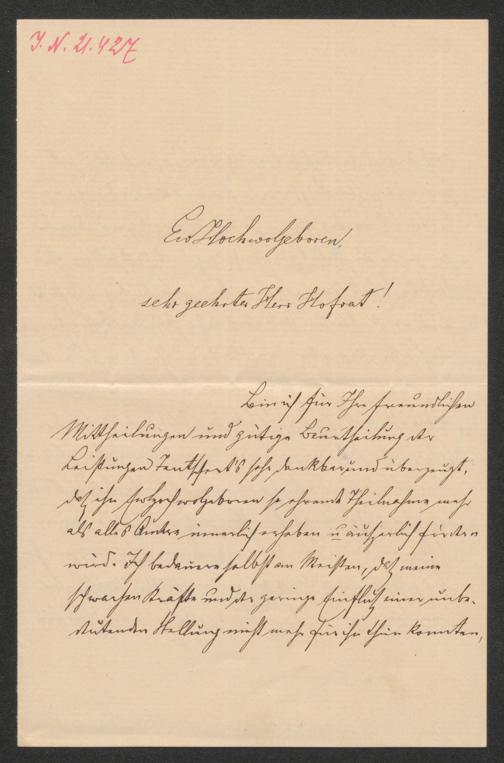 J. N. 21.427
Ew Hochwolgeboren,
sehr geehrter Herr Hofrat!
Bin ich für Ihre freundlichen
Mittheilungen und gütige Beurtheilung der
Leistungen sehr dankbar und überzeugt,
daß ihn Ew Hochwolgeboren so ehrende Theilnahme mehr
als alles Andere innerlich erheben u äußerlich fördern
wird. Ich bedauere selbst am Meisten, daß meine
schwachen Kräfte und der geringe Einfluß einer unbe-
deutenden Stellung nicht mehr für ihn thun konnten,